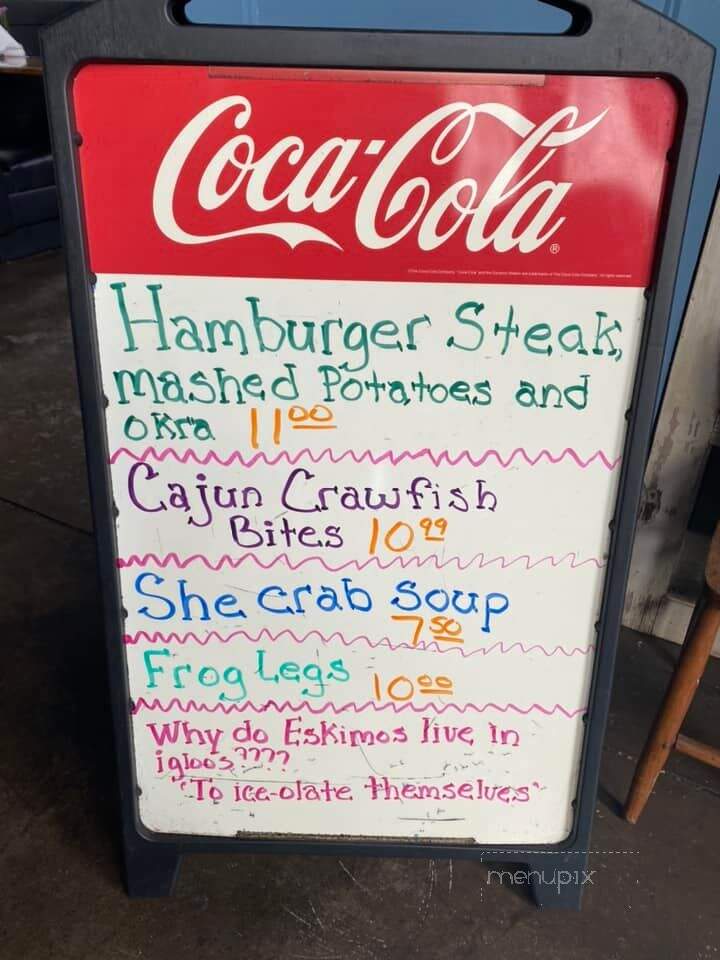 Coca-Cola
®
Hamburger Steak,
mashed Potatoes and
okra 11 00
Cajun Crawfish
Bites 10 99
She crab Soup
7 50
Frog Legs 10 00
Why do Eskimos live in
igloos????
"To ice-olate themselves"
menupix